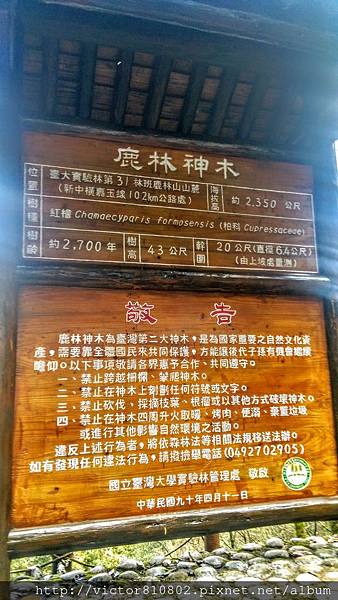 鹿林神木
位置 臺大實驗林第31林班鹿林山山麓 (新中橫嘉玉線102km公路處) 海拔高 約2,350公尺
樹種 紅檜 Chamaecyparis formosensis (柏科 Cupressaceae)
樹齡 約2,700年 樹高 43公尺 幹圍 20公尺(直徑6.4公尺) (由上坡處量測)
敬告
鹿林神木為臺灣第二大神木，是為國家重要之自然文化資
產，需要靠全體國民來共同保護，方能讓後代子孫有機會繼續
瞻仰。以下事項敬請各界惠予合作、共同遵守。
一、禁止跨越柵欄、攀爬神木。
二、禁止在神木上刻劃任何符號或文字。
三、禁止砍伐、採摘枝葉、根瘤或以其他方式破壞神木。
四、禁止在神木四周升火取暖、烤肉、便溺、棄置垃圾
或進行其他影響自然環境之活動。
違反上述行為者，將依森林法等相關法規移送法辦。
如有發現任何違法行為，請撥檢舉電話(0492702905)
國立臺灣大學實驗林管理處 敬啟
中華民國九十年四月十一日
http://victor810802.pixnet.net/album